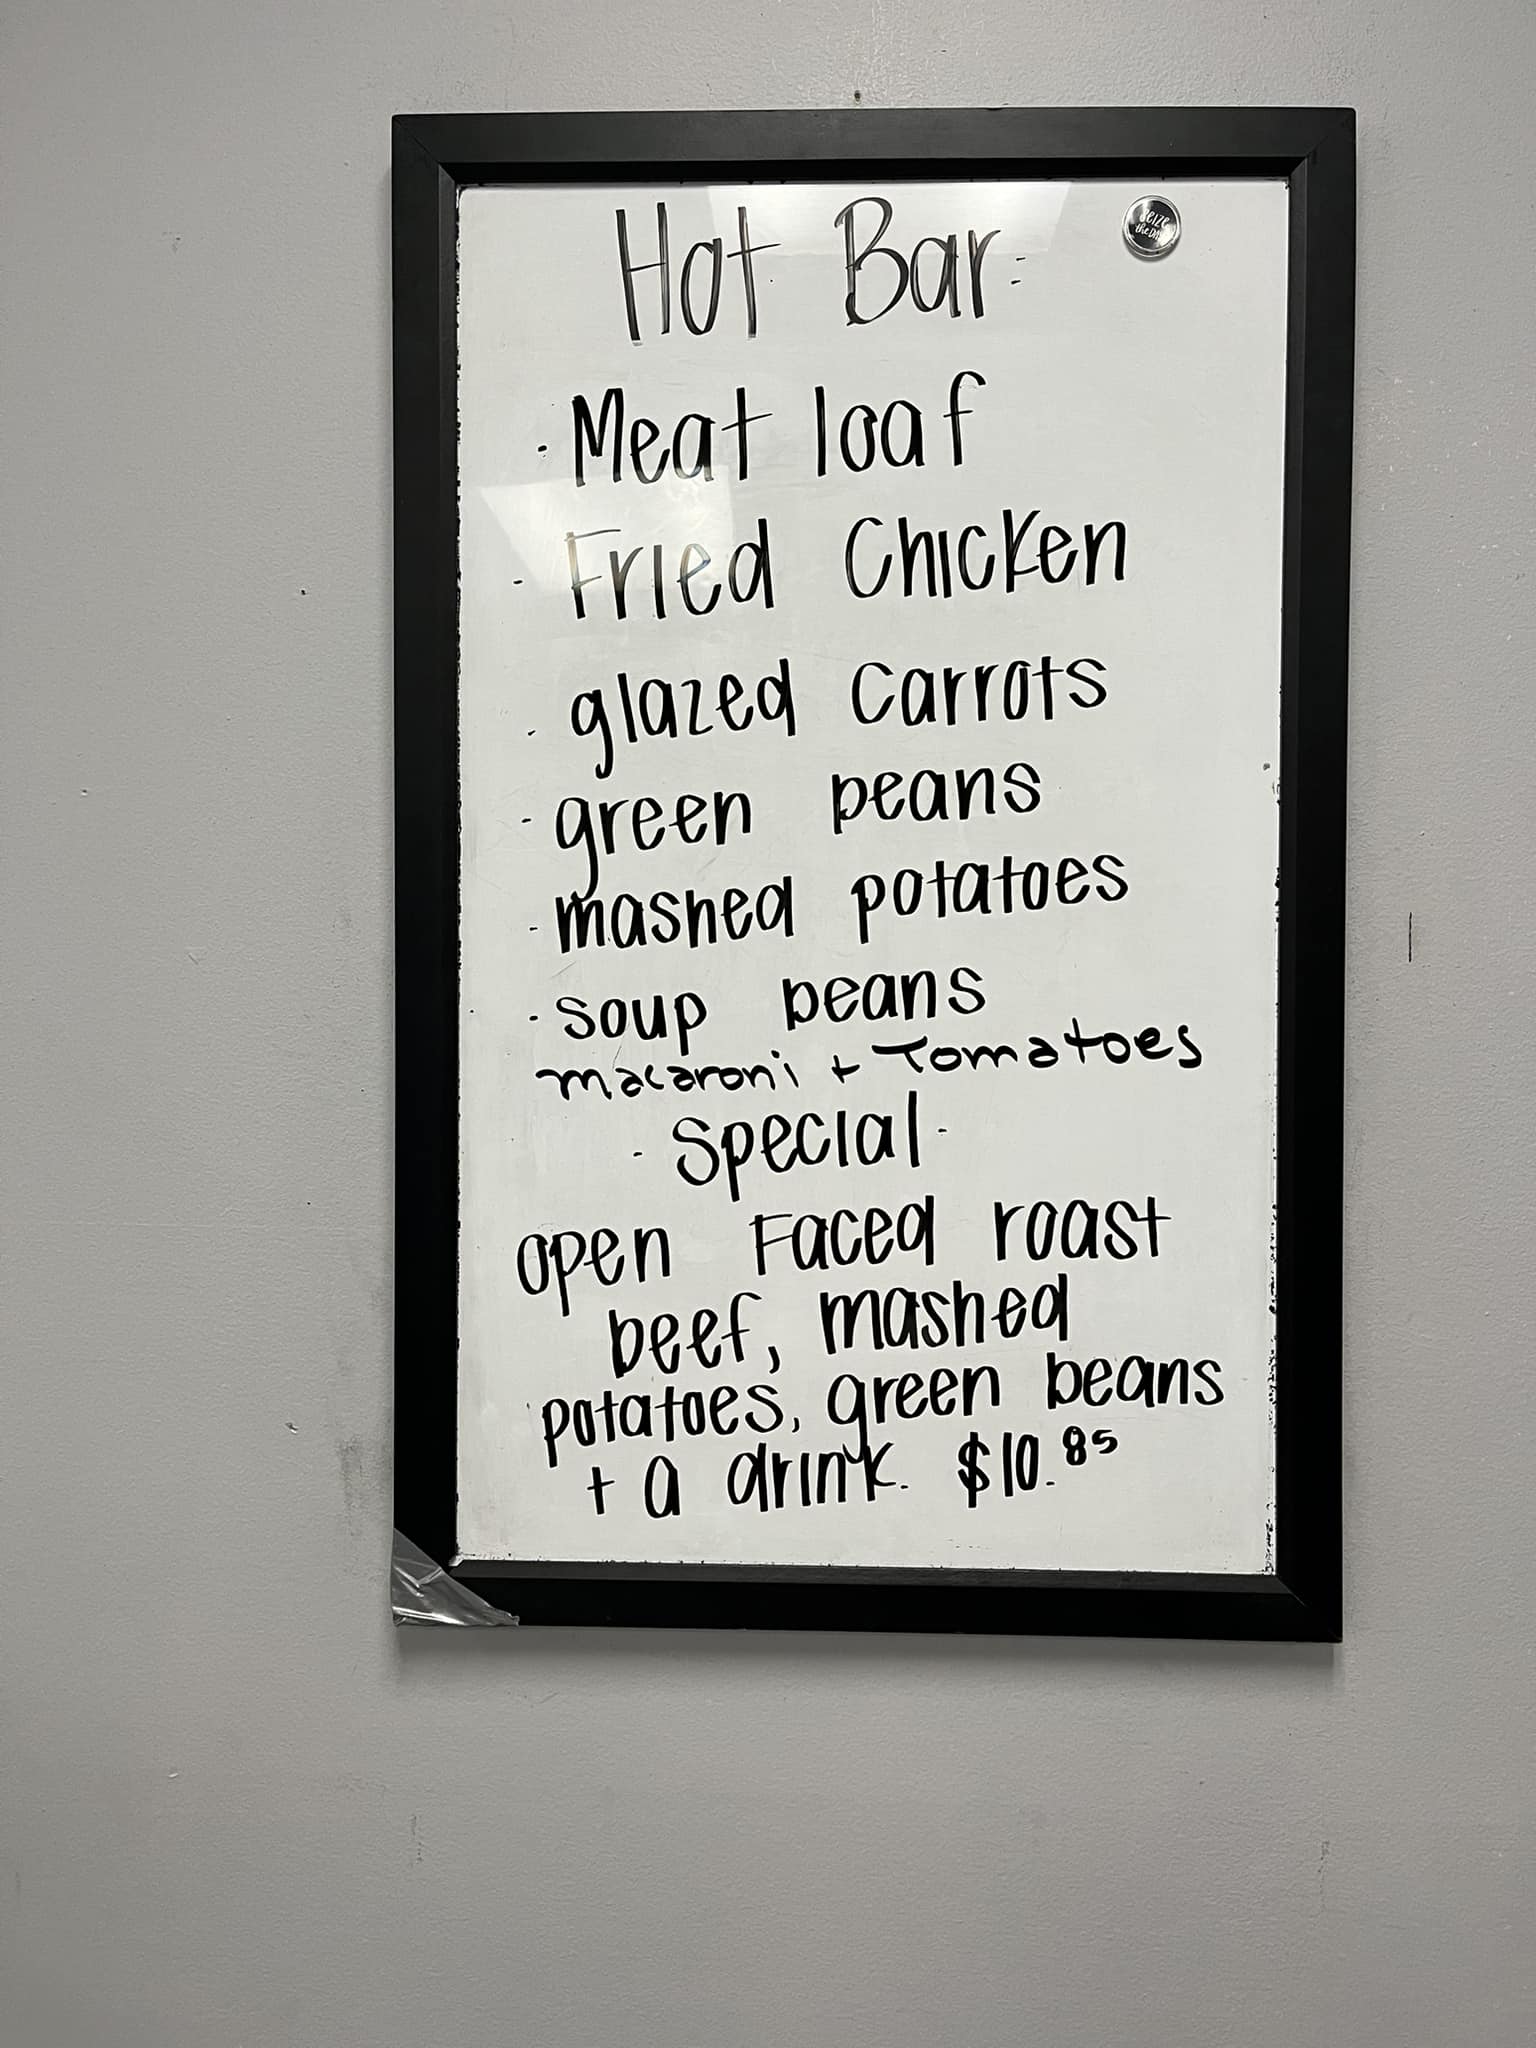 Hot Bar:
seize
the DAY
· Meat loaf
- Fried Chicken
· glazed carrots
- green beans
- mashed potatoes
· soup beans
macaroni + Tomatoes
· Special ·
open Faced roast
beef, mashed
potatoes, green beans
+ a drink. $10.85